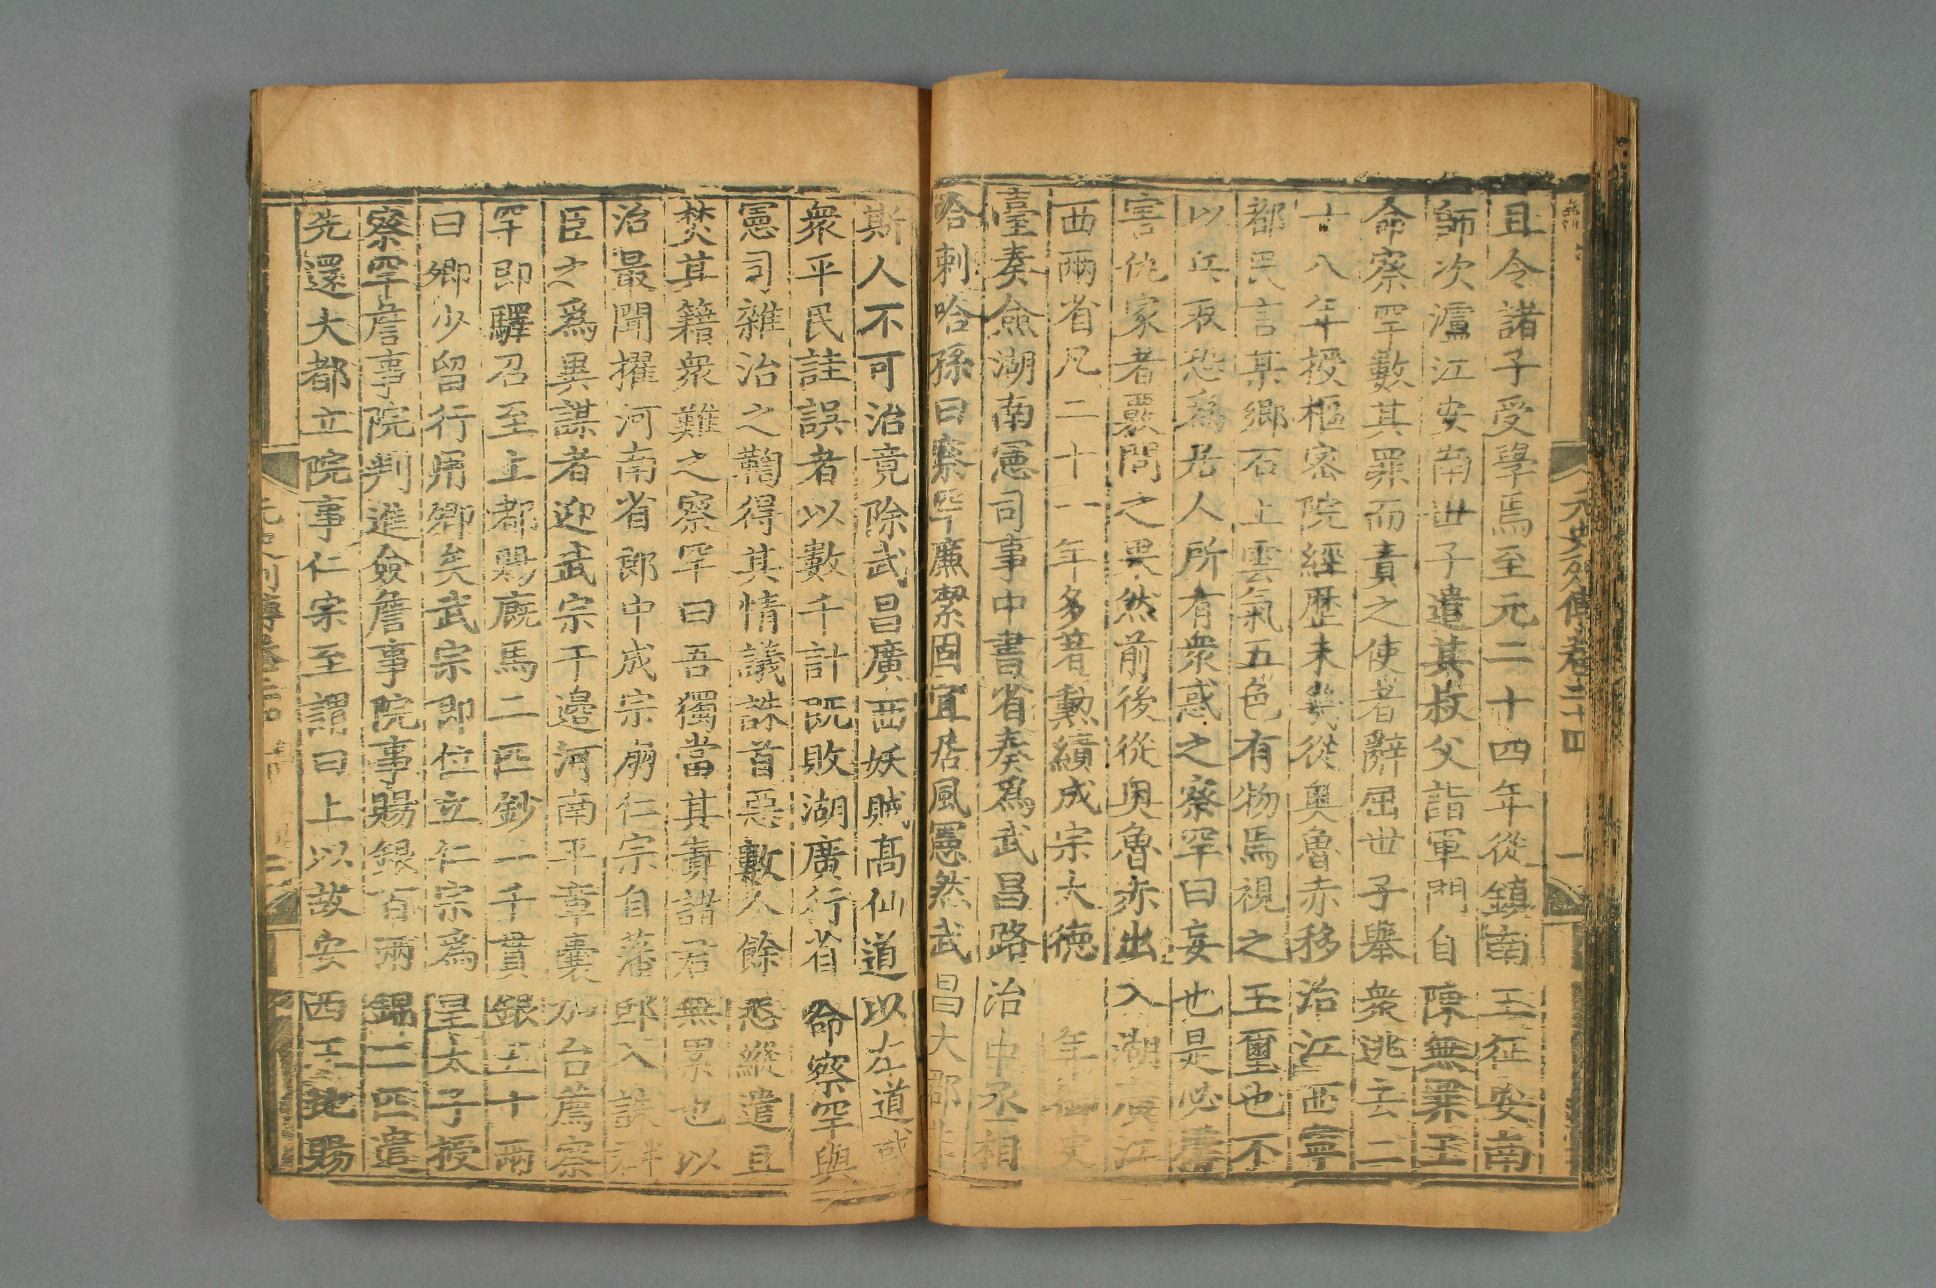 元史列傳卷二十四
一
且令諸子受學焉至元二十四年從鎮南王征安南
師次瀘江安南世子遣其叔父詣軍門自陳無罪王
命察罕數其罪而責之使者辭屈世子舉衆逃去二
十八年授樞密院經歷未幾從奧魯赤移治江西寧
都民言某鄉石上雲氣五色有物焉視之玉璽也不
以兵取恐爲居人所有衆惑之察罕曰妄也是必
害仇家者覈問之果然前後從奧魯赤出入湖廣江
西兩省凡二十一年多著勳績成宗大德 年御史
臺奏僉湖南憲司事中書省奏爲武昌路治中丞相
哈剌哈孫曰察罕廉潔固宜居風憲然武昌大郡非
斯人不可治竟除武昌廣西妖賊高仙道以左道或
衆平民詿誤者以數千計既敗湖廣行省命察罕與
憲司雜治之鞫得其情議誅首惡數人餘悉縱遣且
焚其籍衆難之察罕曰吾獨當其責諸君無累也以
治最聞擢河南省郎中成宗崩仁宗自藩邸入誅群
臣之爲異謀者迎武宗于邊河南平章囊加台薦察
罕即驛召至上都賜廐馬二匹鈔一千貫銀五十兩
曰卿少留行用卿矣武宗即位立仁宗爲皇太子授
察罕詹事院判進僉詹事院事賜銀百兩錦二匹遣
先還大都立院事仁宗至謂曰上以故安西王地賜